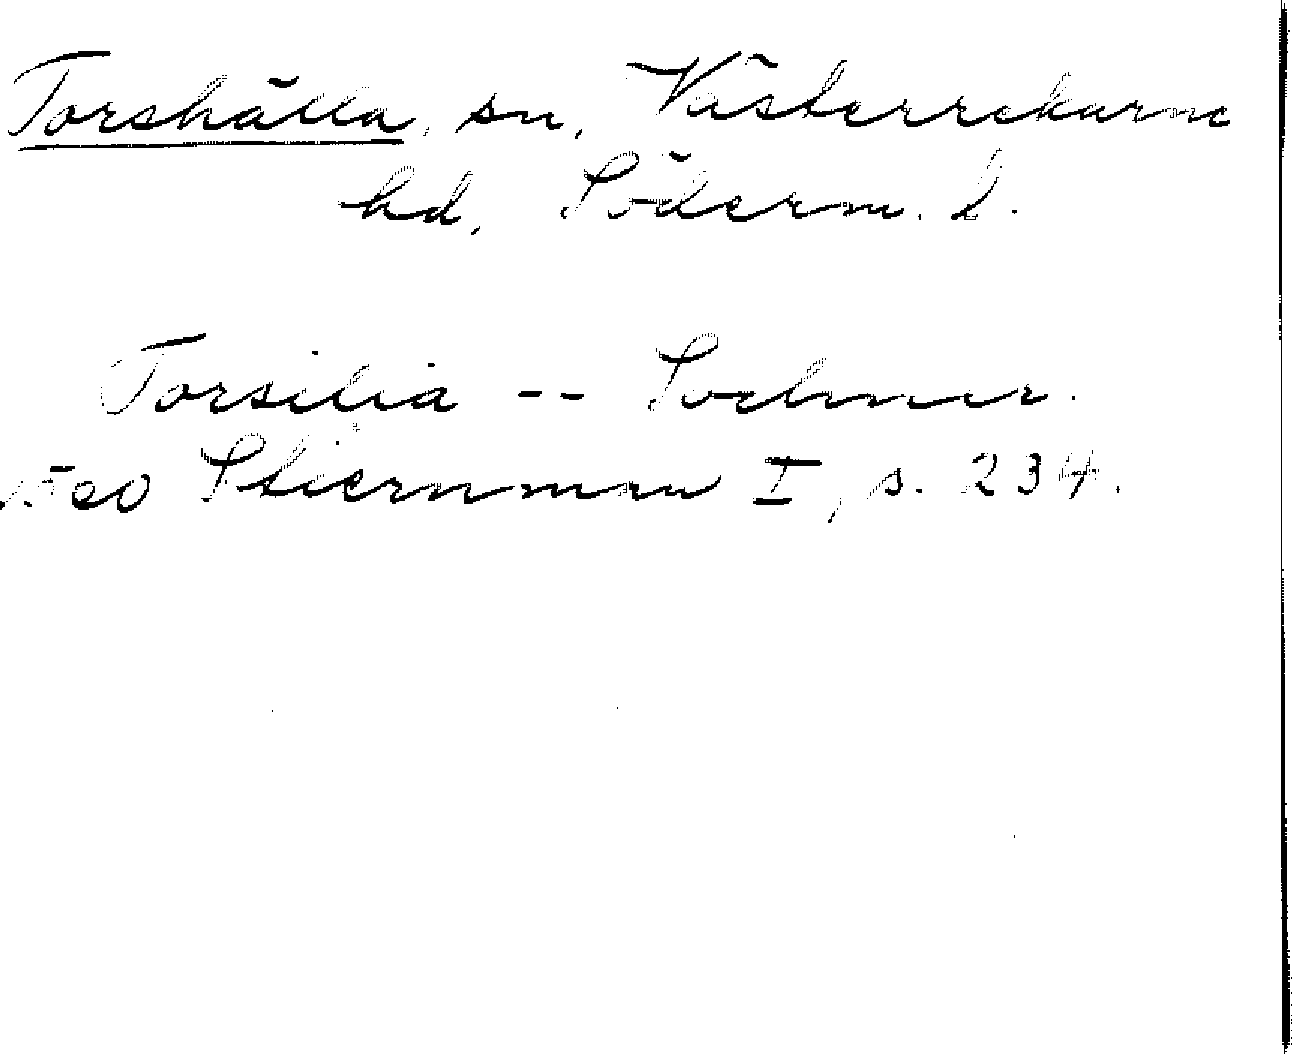 Torshälla, sn, Västerrekarne
hd, Söderm. l.
Torsilia -- Sodmer.
1560 Stiernman I, s. 234.